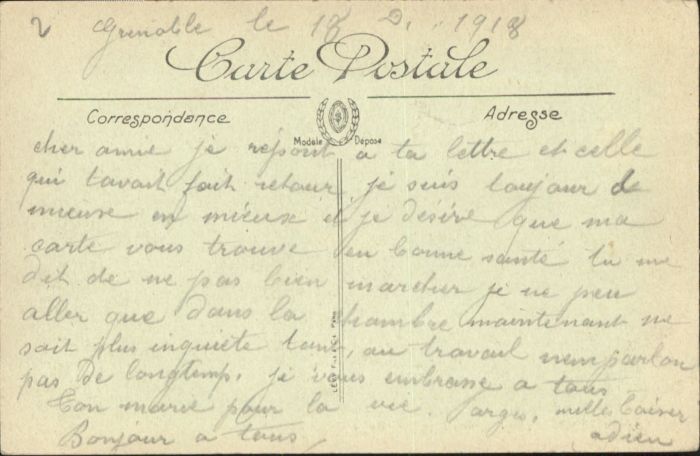 2 Grenoble le 18 D. 1918
Carte Postale
Correspondance
Adresse
Modèle Déposé
cher amie je répont a ta lettre et celle
qui tavait fait retour je suis toujour de
mieuse en mieuse et je désire que ma
carte vous trouve en bonne santé tu me
dit de ne pas bien marcher je ne peu
aller que dans la chambre maintenant ne
soit plus inquiète tant, au travail nemparlon
pas de longtemp. je vous embrasse a tous
ton marie pour la vie. mille baiser
Bonjour a tous, adieu